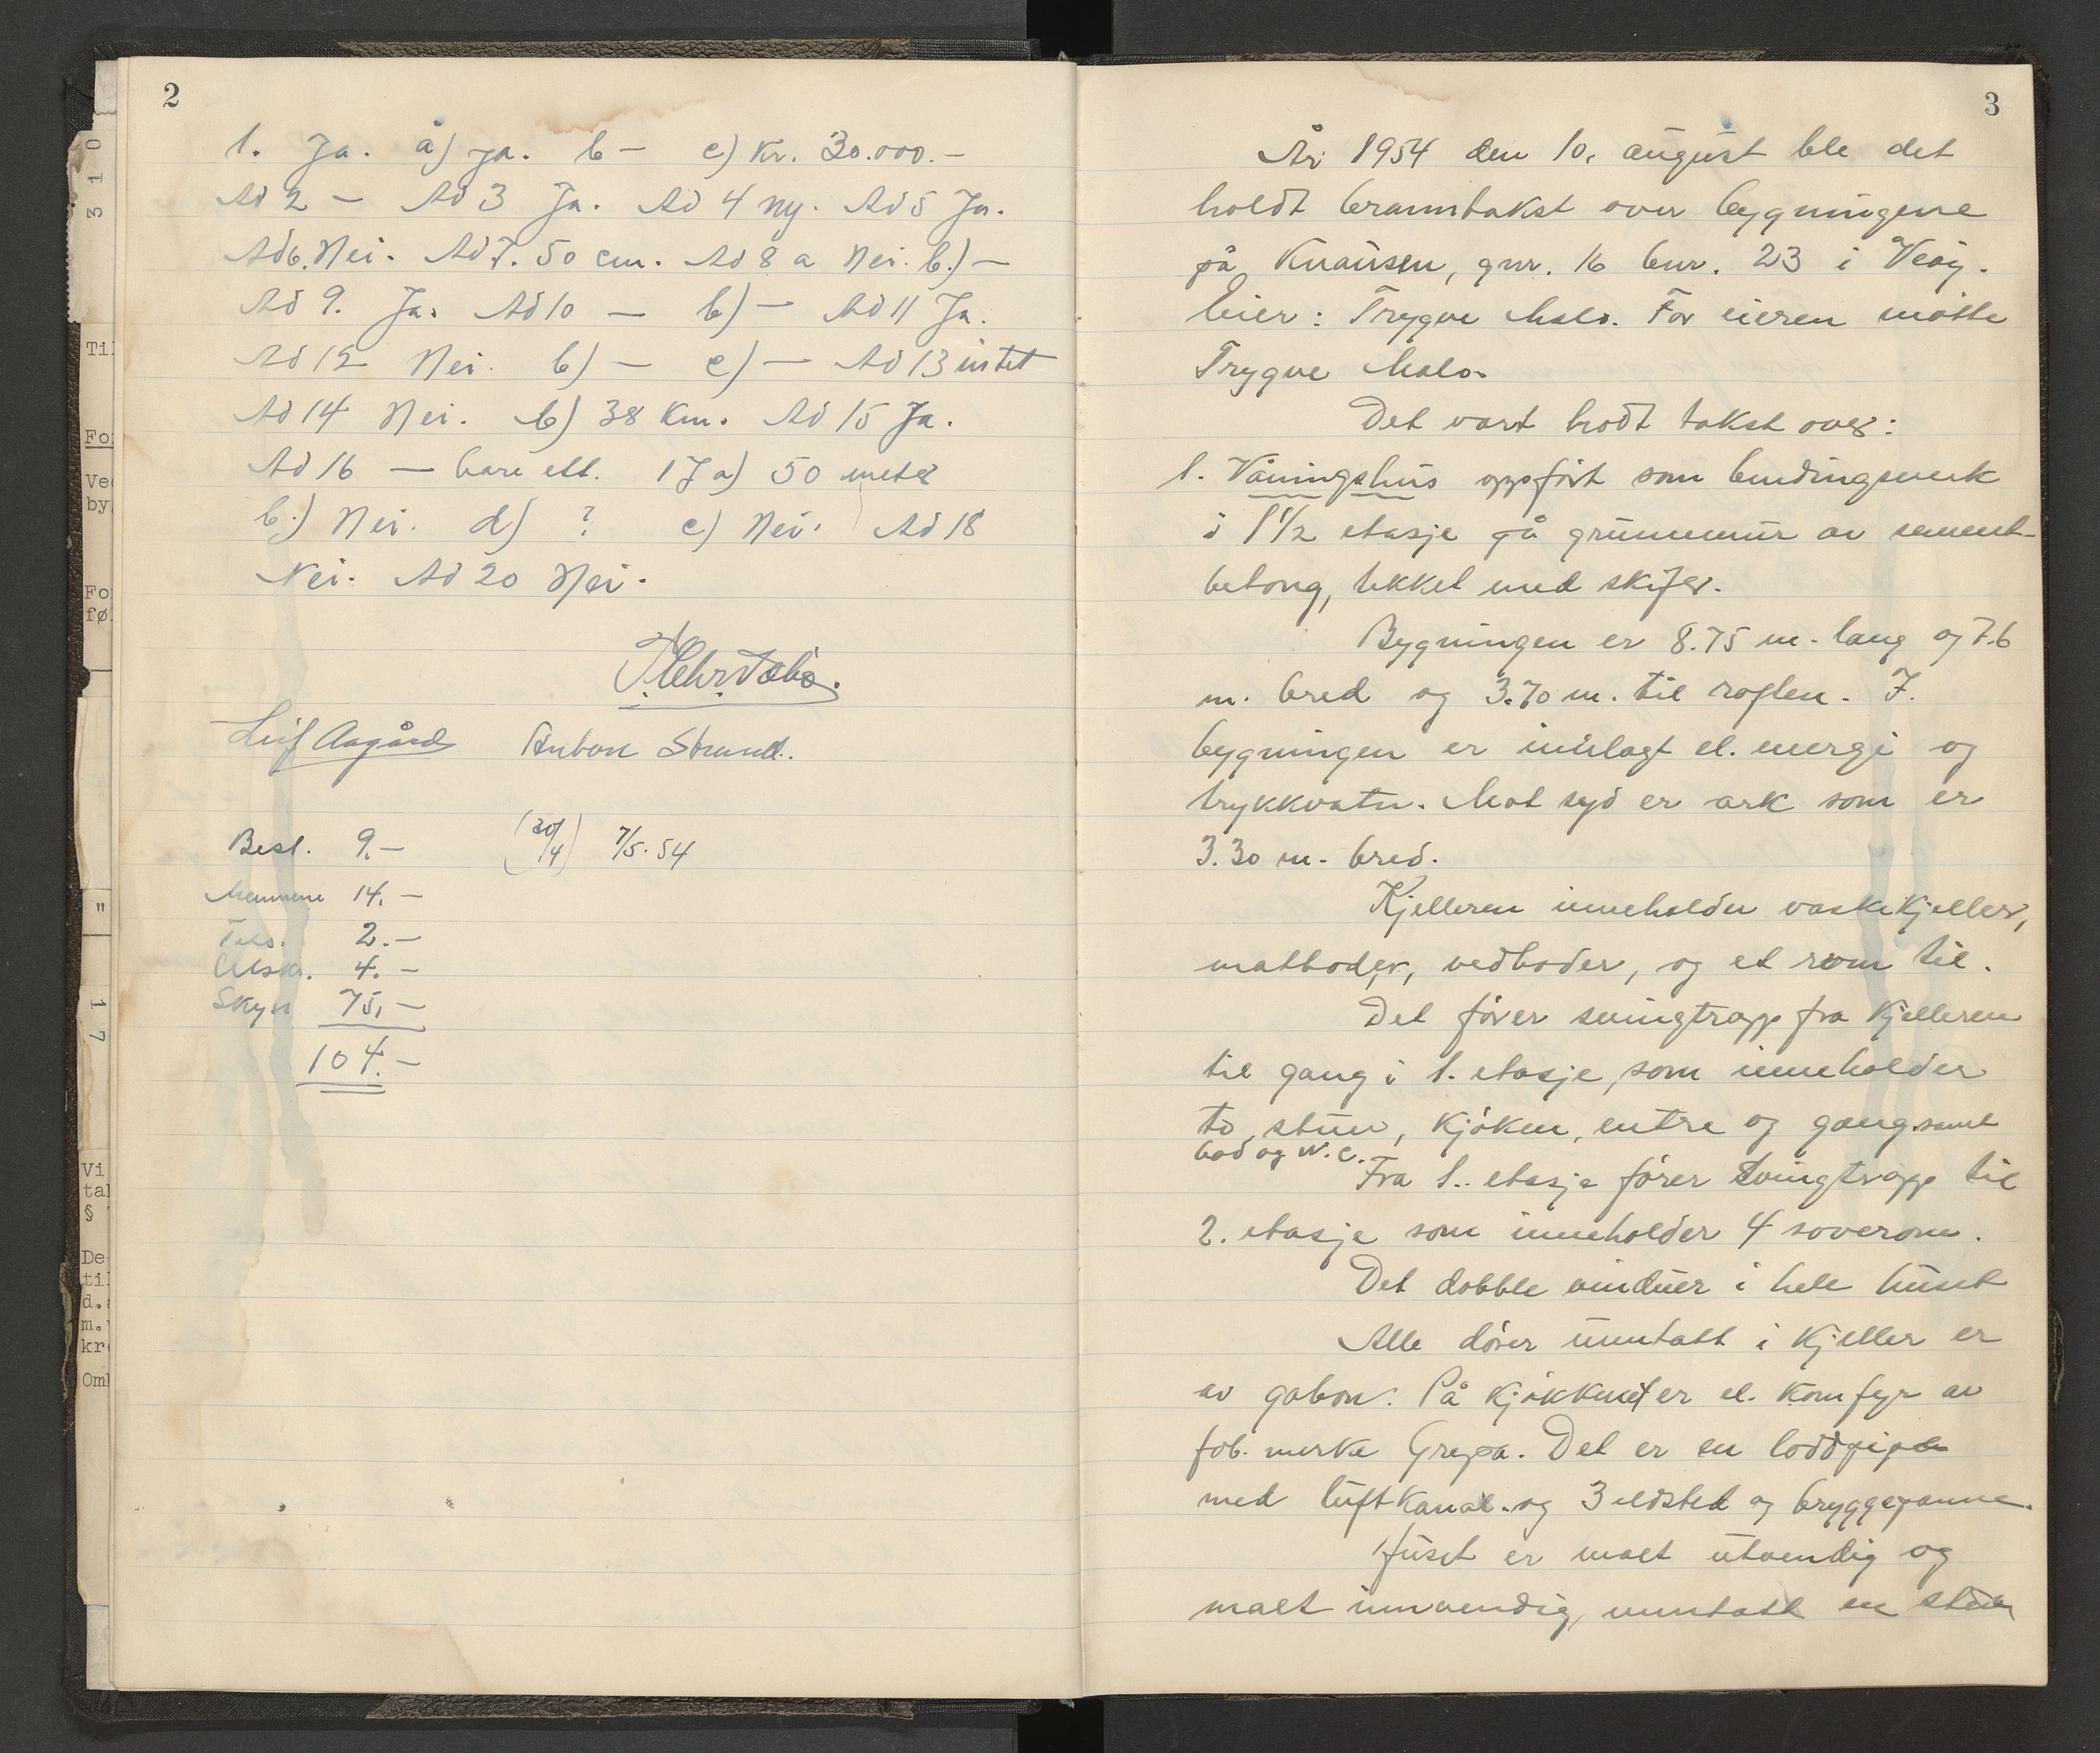 2
1. Ja. a) ja. b — c) kr. 30.000.—
Ad 2 — Ad 3 Ja. Ad 4 ny. Ad 5 Ja.
Ad 6. Nei. Ad 7. 50 cm. Ad 8 a Nei. b.) —
Ad 9. Ja. Ad 10 — b) — Ad 11 Ja.
Ad 12 Nei. b) — c) — Ad 13 intet
Ad 14 Nei. b) 38 km. Ad 15 Ja.
Ad 16 — bare ett. 17 a) 50 meter
b.) Nei. d) ? e) Nei. Ad 18
Nei. Ad 20 Nei.
Leif Aagård Anton Strand.
Best. 9.— (20/4) 7/5.54
Mennene 14.—
2.—
Utskr. 4.—
Skyss 75,—
104.—
3
År 1954 den 10. august ble det
holdt branntakst over bygningene
på Knausen, gnr. 16 bnr. 23 i Veøy.
Eier: Trygve Malo. For eieren møtte
Trygve Malo.
Det vart hodt takst over:
1. Våningshus oppført som bindingsverk
i 1 1/2 etasje på grunnmur av sement-
betong, tekket med skifer.
Bygningen er 8.75 m. lang og 7.6
m. bred og 3.70 m. til raften. I.
bygningen er innlagt el. energi og
trykkvatn. Mot syd er ark som er
3.30 m. bred.
Kjelleren inneholder vaskekjeller,
matboder, vedboder, og et rom til.
Det fører svingtrapp fra kjelleren
til gang i 1. etasje, som inneholder
to stuer, kjøken, entre og gang samt
bod og W.C.
Fra 1. etasje fører svingtrapp til
2. etasje som inneholder 4 soverom.
Det dobble vinduer i hele huset
Alle dører unntatt i kjeller er
av gabon. På kjøkkenet er el. komfyr av
fab. merke Grepa. Det er en loddpipe
med luftkanal. og 3 ildsted og bryggepanne.
Huset er malt utvendig og
malt innvendig, unntatt en stue